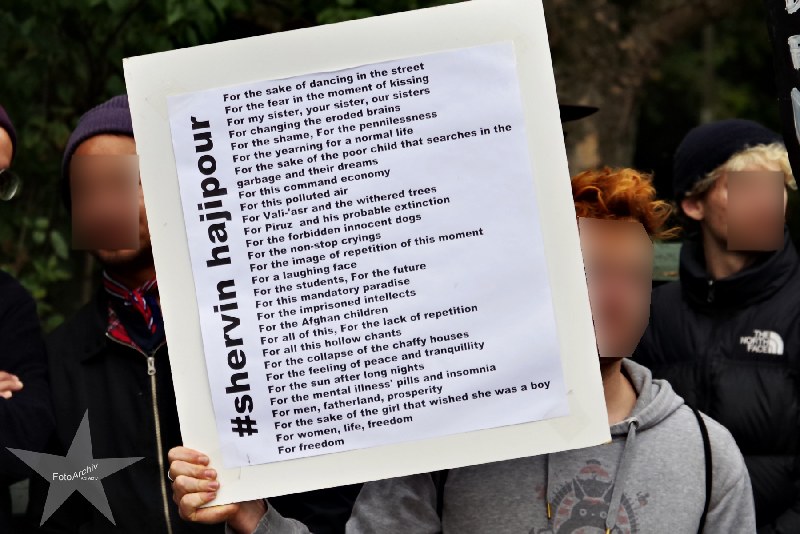 #shervin hajipour
For the sake of dancing in the street
For the fear in the moment of kissing
For my sister, your sister, our sisters
For changing the eroded brains
For the shame, For the pennilessness
For the yearning for a normal life
For the sake of the poor child that searches in the
garbage and their dreams
For this command economy
For this polluted air
For Vali-'asr and the withered trees
For Piruz and his probable extinction
For the forbidden innocent dogs
For the non-stop cryings
For the image of repetition of this moment
For a laughing face
For the students, For the future
For this mandatory paradise
For the imprisoned intellects
For the Afghan children
For all of this, For the lack of repetition
For all this hollow chants
For the collapse of the chaffy houses
For the feeling of peace and tranquillity
For the sun after long nights
For the mental illness' pills and insomnia
For men, fatherland, prosperity
For the sake of the girl that wished she was a boy
For women, life, freedom
For freedom
THE
NORTH
FACE
FotoArchiv